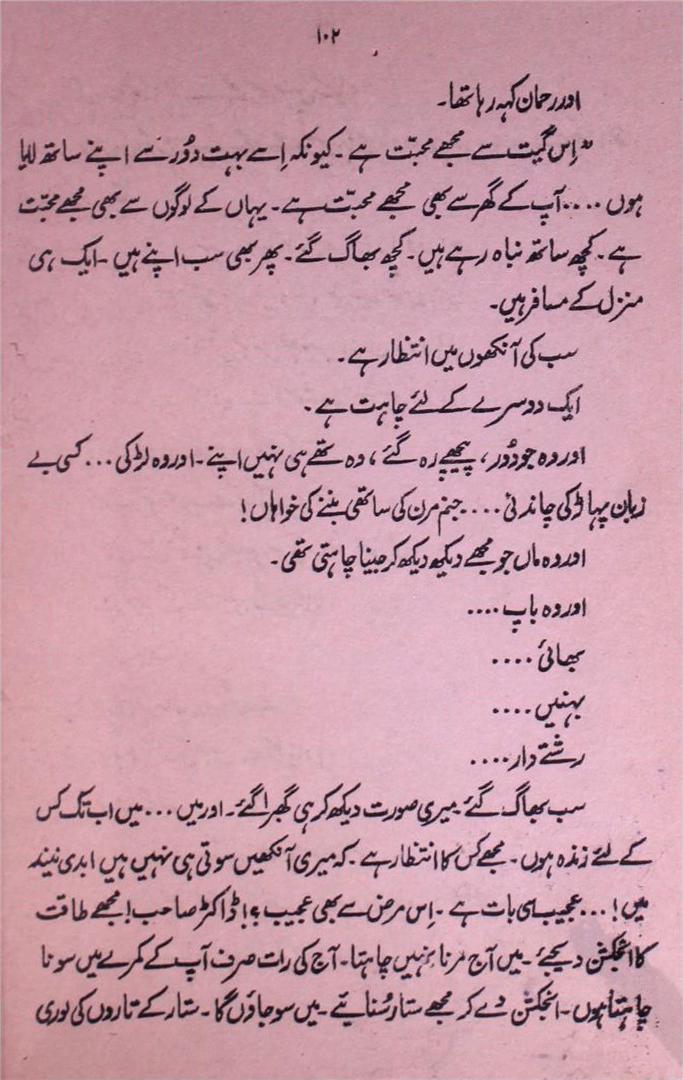 ۱۰۲
اور رحمان کہہ رہا تھا۔
”اِس گیت سے مجھے محبّت ہے۔ کیونکہ اِسے بہت دُور سے اپنے ساتھ لایا
ہوں .... آپ کے گھر سے بھی مجھے محبّت ہے۔ یہاں کے لوگوں سے بھی مجھے محبّت
ہے۔ کچھ ساتھ نباہ رہے ہیں۔ کچھ بھاگ گئے۔ پھر بھی سب اپنے ہیں۔ ایک ہی
منزل کے مسافر ہیں۔
سب کی آنکھوں میں انتظار ہے۔
ایک دوسرے کے لئے چاہت ہے۔
اور وہ جو دُور، پیچھے رہ گئے، وہ تھے ہی نہیں اپنے۔ اور وہ لڑکی ... کسی بے
زبان پہاڑ کی چاندنی .... جنم مرن کی ساتھی بننے کی خواہاں!
اور وہ ماں جو مجھے دیکھ دیکھ کر جینا چاہتی تھی۔
اور وہ باپ ....
بھائی ....
بہنیں ....
رشتے دار ....
سب بھاگ گئے۔ میری صورت دیکھ کر ہی گھبرا گئے۔ اور میں ... میں اب تک کس
کے لئے زندہ ہوں۔ مجھے کس کا انتظار ہے۔ کہ میری آنکھیں سوتی ہی نہیں ہیں ابدی نیند
میں! ... عجیب سی بات ہے۔ اِس مرض سے بھی عجیب ہے! ڈاکٹر صاحب! مجھے طاقت
کا انجکشن دیجئے۔ میں آج مرنا نہیں چاہتا۔ آج کی رات صرف آپ کے کمرے میں سونا
چاہتا ہوں۔ انجکشن دے کر مجھے ستار سُنایئے۔ میں سو جاؤں گا۔ ستار کے تاروں کی لوری